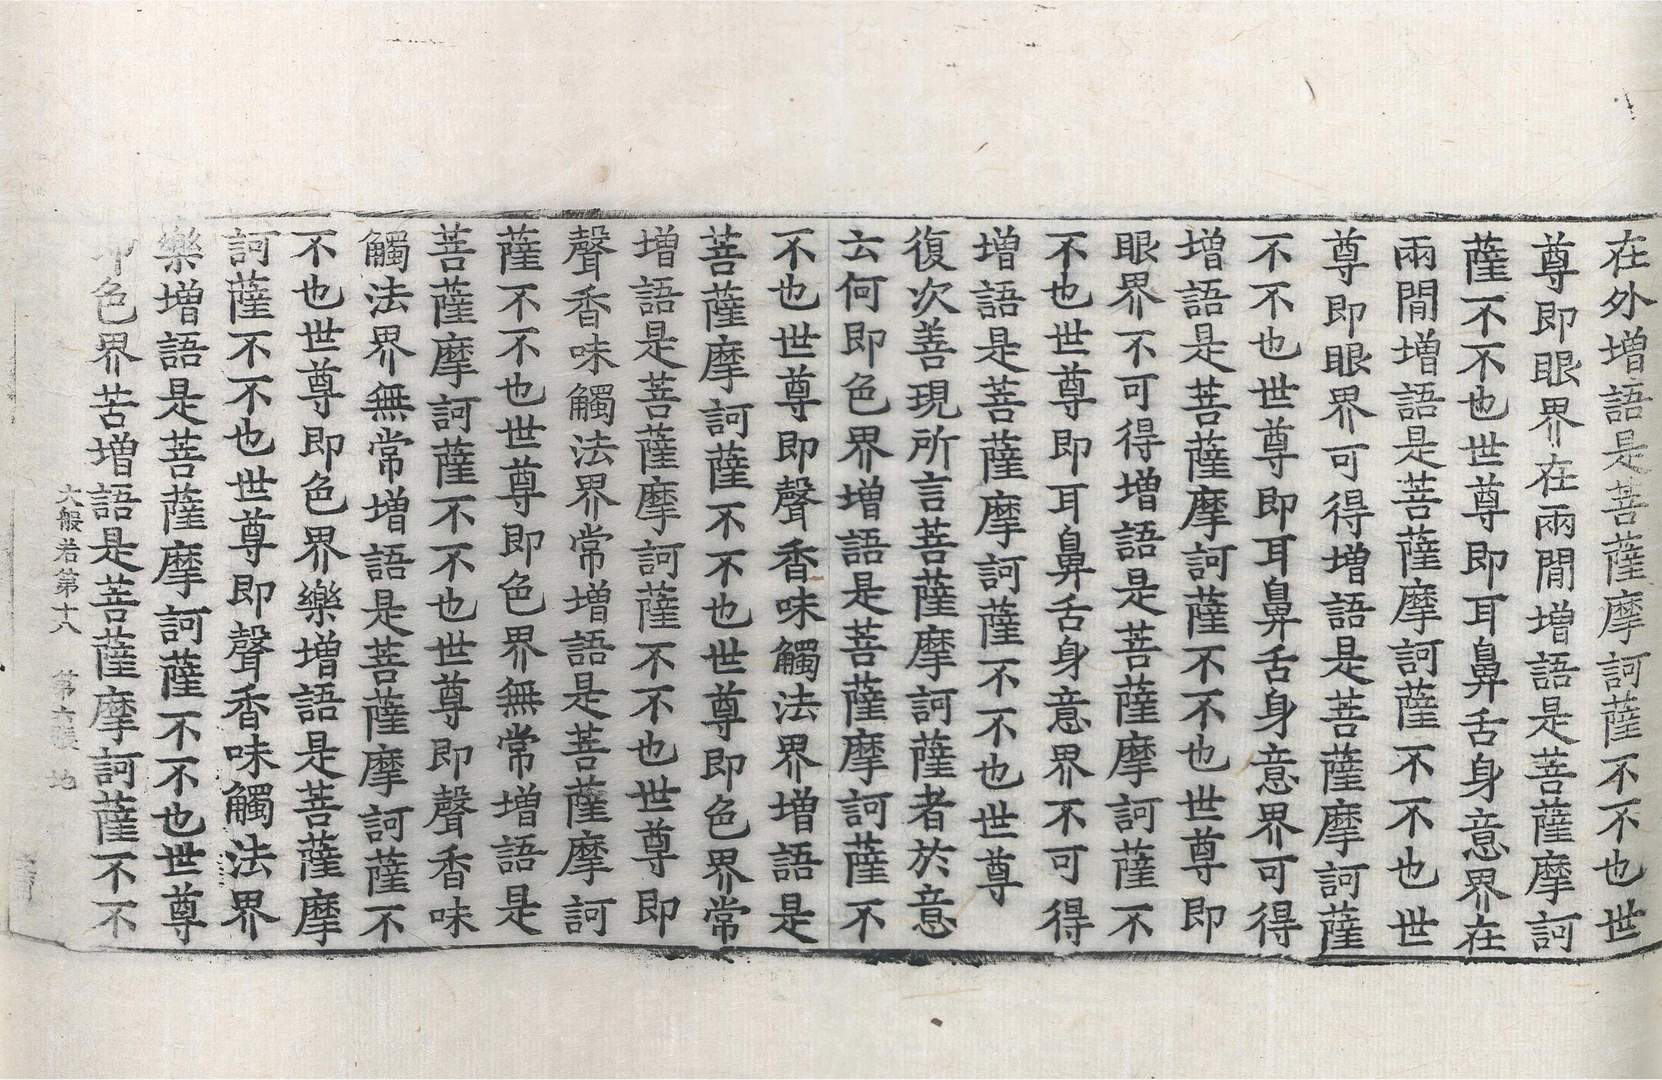 在外增語是菩薩摩訶薩不不也世
尊即眼界在兩閒增語是菩薩摩訶
薩不不也世尊即耳鼻舌身意界在
兩閒增語是菩薩摩訶薩不不也世
尊即眼界可得增語是菩薩摩訶薩
不不也世尊即耳鼻舌身意界可得
增語是菩薩摩訶薩不不也世尊即
眼界不可得增語是菩薩摩訶薩不
不也世尊即耳鼻舌身意界不可得
增語是菩薩摩訶薩不不也世尊
復次善現所言菩薩摩訶薩者於意
云何即色界增語是菩薩摩訶薩不
不也世尊即聲香味觸法界增語是
菩薩摩訶薩不不也世尊即色界常
增語是菩薩摩訶薩不不也世尊即
聲香味觸法界常增語是菩薩摩訶
薩不不也世尊即色界無常增語是
菩薩摩訶薩不不也世尊即聲香味
觸法界無常增語是菩薩摩訶薩不
不也世尊即色界樂增語是菩薩摩
訶薩不不也世尊即聲香味觸法界
樂增語是菩薩摩訶薩不不也世尊
即色界苦增語是菩薩摩訶薩不不
大般若第十八 第六張 地